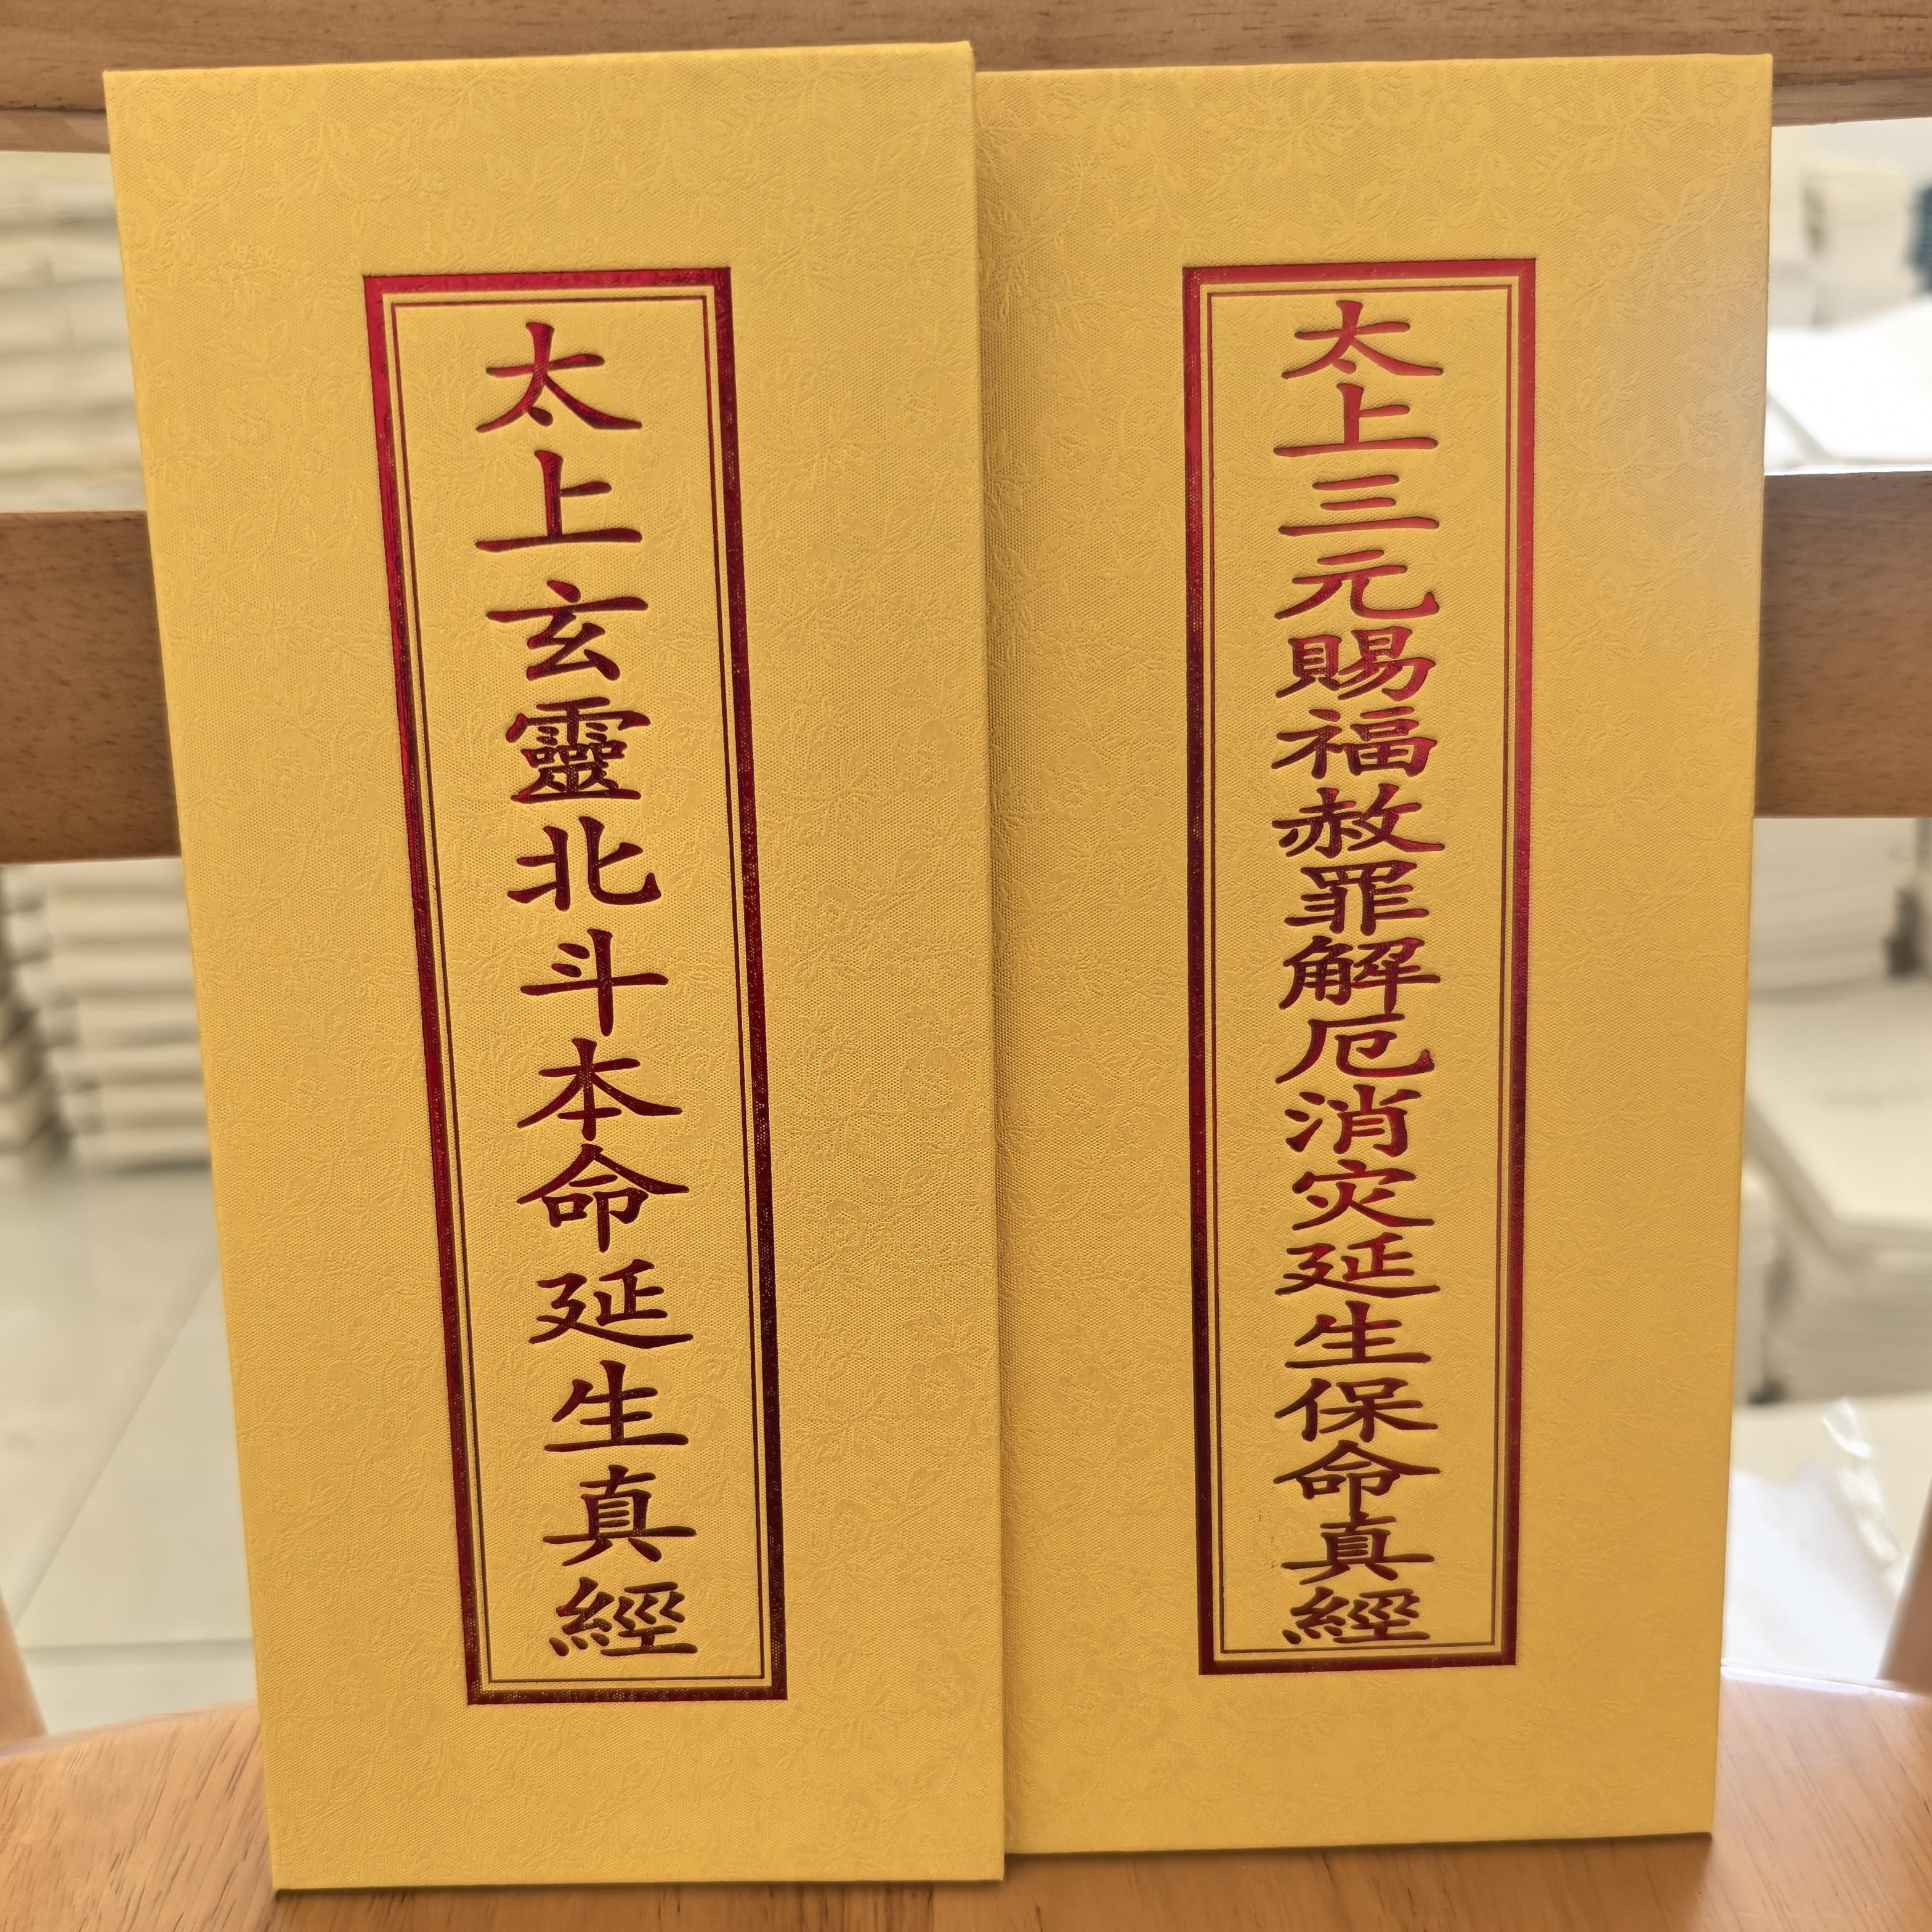 太上玄靈北斗本命延生真經
太上三元賜福赦罪解厄消灾延生保命真經